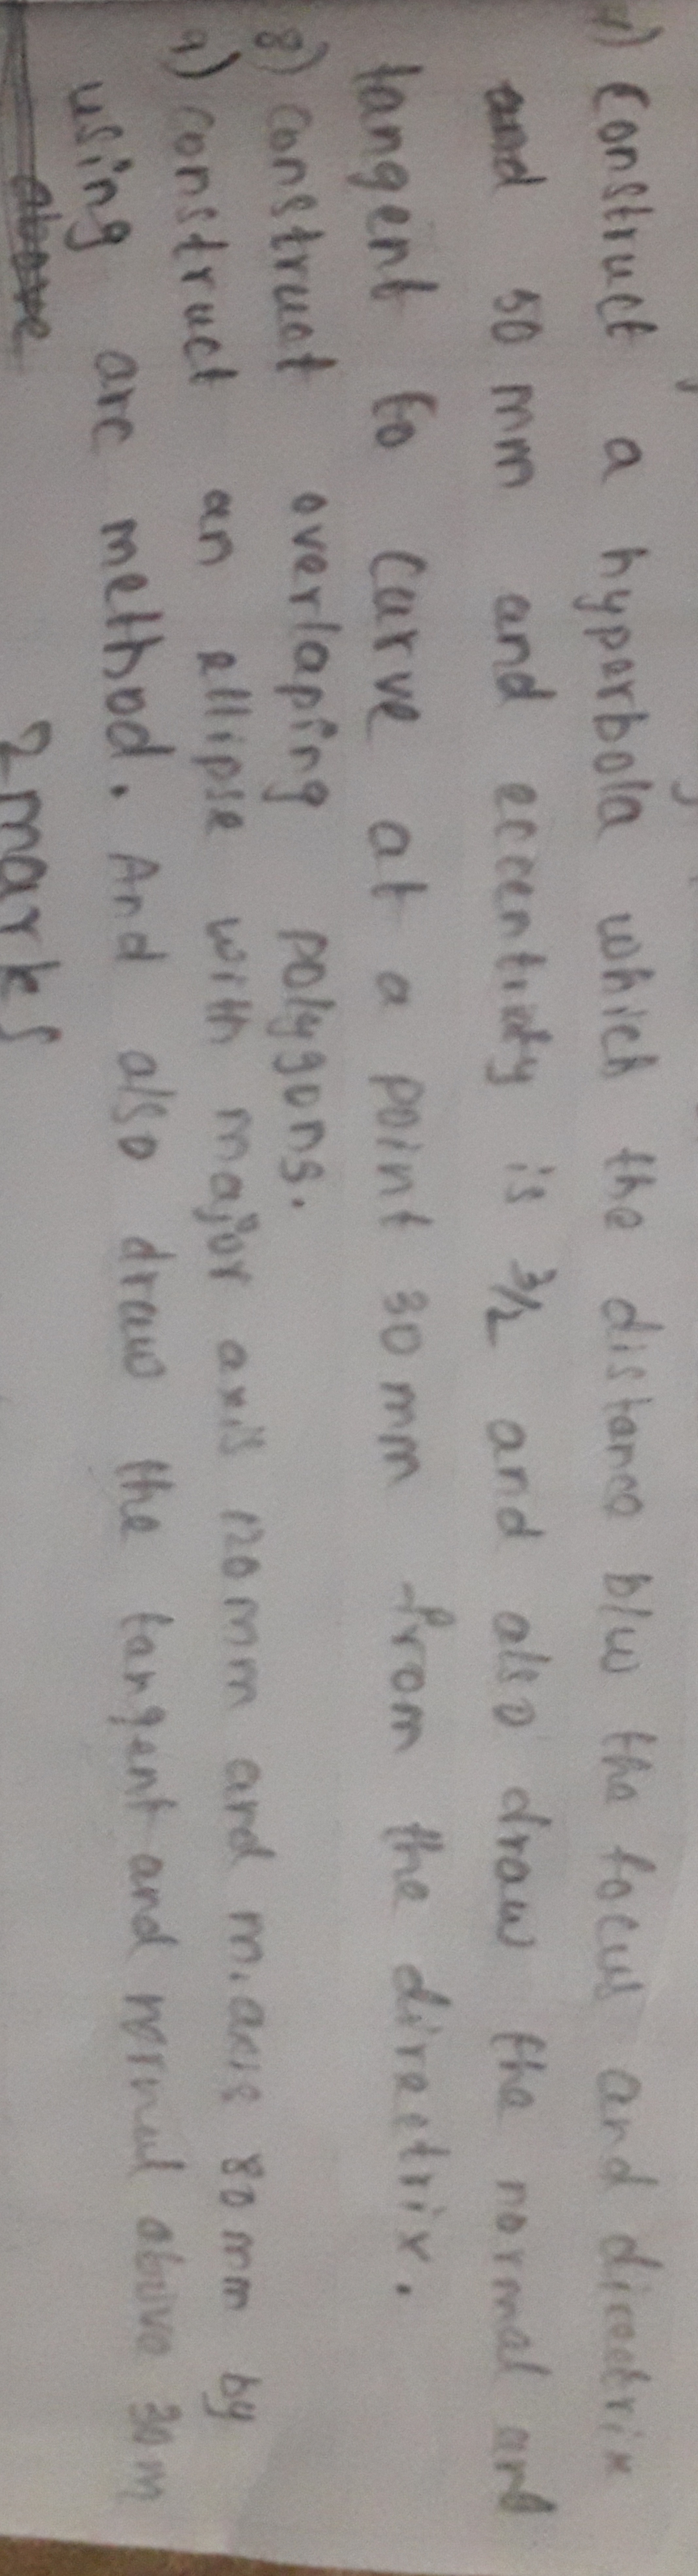 Construct a hyparbola which the distance b/w the focus and directrix
and 50 mm and eccentrity is 3/2 and also draw the normal and
tangent to curve at a point 30 mm from the directrix.
8) construct overlaping polygons.
9) construct an ellipse with major axis 120mm and m.axis 80mm by
using arc method. And also draw the tangent and normal above 30m
above
2 marks